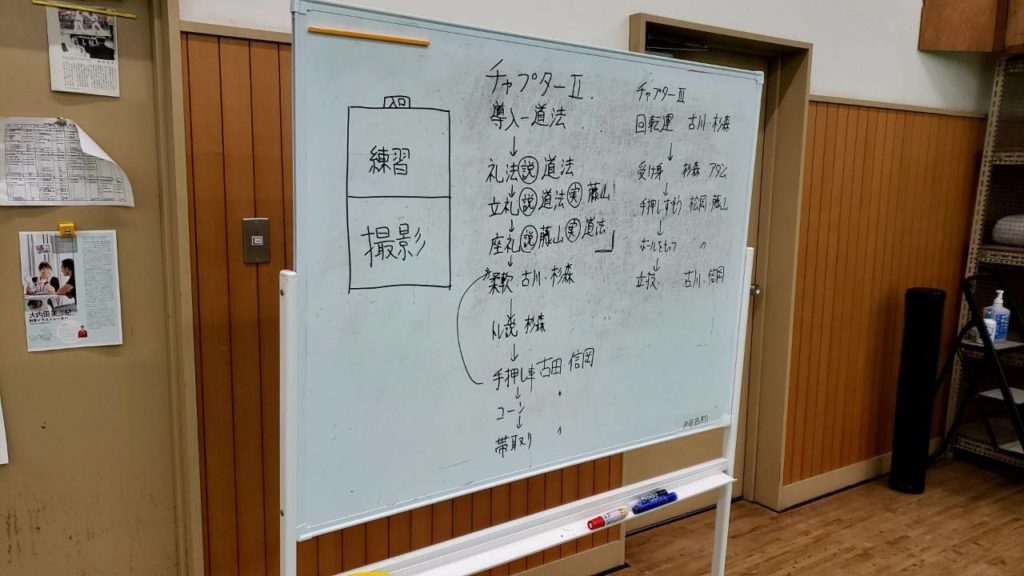 入口
練習
撮影
チャプターⅡ
導入ー道法
↓
礼法(説)道法
↓
立礼(説)道法(実)藤山
↓
座礼(説)藤山(実)道法
↓
柔軟 古川・杉森
↓
トレ説 杉森
↓
手押し車 古田・信岡
↓
コーン 〃
↓
帯取り 〃
チャプターⅢ
回転運 古川・杉森
↓
受け身 杉森 アダム
↓
手押しずもう 松岡 藤山
↓
ボールをもって 〃
↓
立技 古川・信岡